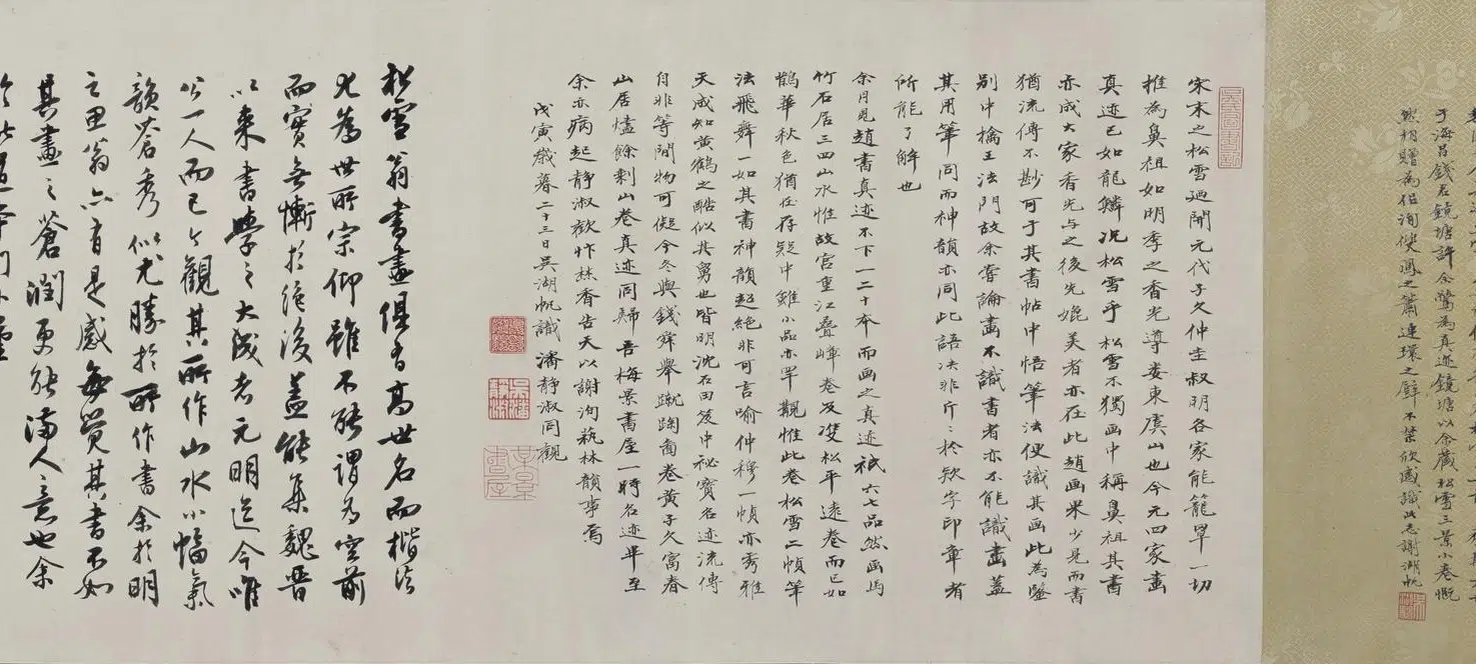 于海昌錢君鏡塘許余驚為真迹鏡塘以余藏松雪三景小卷慨
然相贈為侶洵使鳳之簫連環之璧不禁欣感識此志謝湖帆
吳氏圖書記
宋末之松雪廼開元代子久仲圭叔明各家能籠罩一切
推為鼻祖如明季之香光導婁東虞山也今元四家畫
真迹已如龍鱗況松雪乎松雪不獨画中稱鼻祖其書
亦成大家香光与之後先媲美者亦在此趙画果少見而書
猶流傳不尠可于其書帖中悟筆法便識其画此為鑒
别中擒王法門故余嘗論畫不識書者亦不能識畫蓋
其用筆同而神韻亦同此語决非斤〻於欵字印章者
所能了解也
余月見趙書真迹不下一二十本而画之真迹祇六七品然画馬
竹石居三四山水惟故宫重江叠嶂卷及雙松平遠卷而已如
鵲華秋色猶在存疑中雖小品亦罕覯惟此卷松雪二幀筆
法飛舞一如其書神韻超絶非可言喻仲穆一幀亦秀雅
天成知黄鶴之酷似其舅也皆明沈石田笈中祕寶名迹流傳
自非等閒物可儗今冬與錢舜舉蹴踘啚卷黄子久富春
山居燼餘剩山卷真迹同歸吾梅景書屋一時名迹畢至
余亦病起静淑歡忭焚香告天以謝洵萟林韻事焉
戊寅歲暮二十三日吴湖帆識 潘静淑同觀
梅景書屋
松雪翁書畫俱有高世名而楷法
尤為世所宗仰雖不能謂為空前
而實無慚於絶後蓋能集魏晋
以来書學之大成者元明迄今唯
公一人而已今觀其所作山水小幅氣
韻蒼秀似尤勝於所作書余於明
之思翁亦有是感每覺其書不如
其畫之蒼潤更能滿人意也余